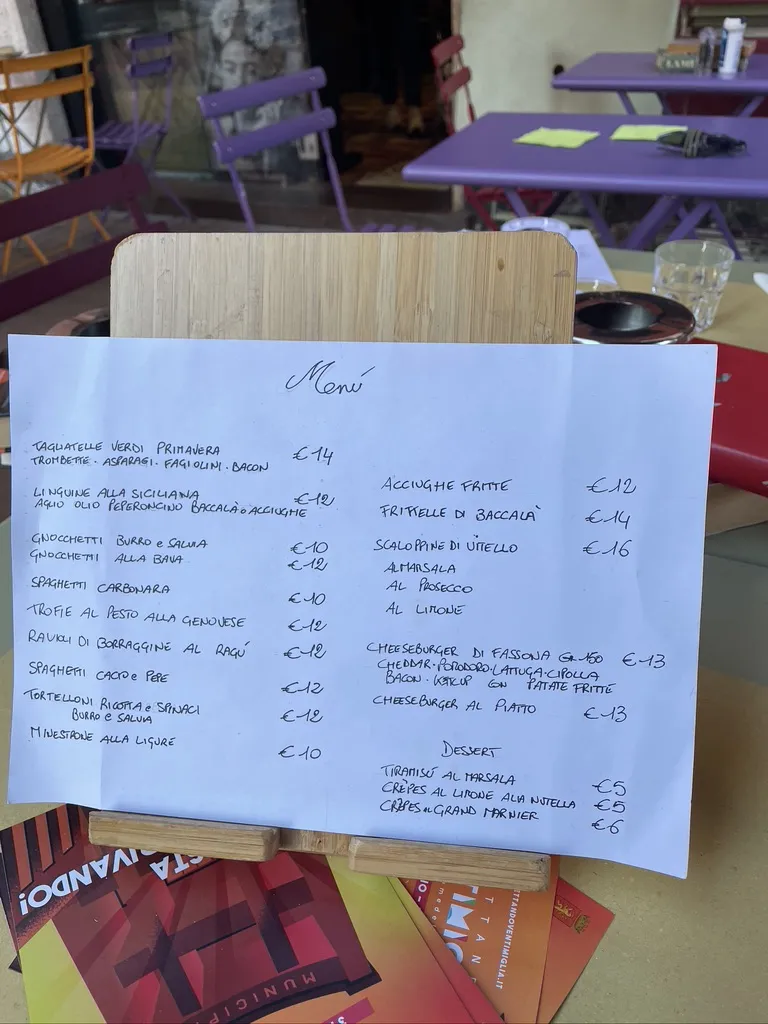 Menú
TAGLIATELLE VERDI PRIMAVERA €14
TROMBETTE. ASPARAGI. FAGIOLINI. BACON
LINGUINE ALLA SICILIANA €12
AGLIO OLIO PEPERONCINO BACCALÀ o ACCIUGHE
GNOCCHETTI BURRO e SALVIA €10
GNOCCHETTI ALLA BAVA €12
SPAGHETTI CARBONARA €10
TROFIE AL PESTO ALLA GENOVESE €12
RAVIOLI DI BORRAGGINE AL RAGÚ €12
SPAGHETTI CACIO e PEPE €12
TORTELLONI RICOTTA e SPINACI €12
BURRO e SALVIA
MINESTRONE ALLA LIGURE €10
ACCIUGHE FRITTE €12
FRITTELLE DI BACCALÀ €14
SCALOPPINE DI VITELLO €16
AL MARSALA
AL PROSECCO
AL LIMONE
CHEESEBURGER DI FASSONA GR 150 €13
CHEDDAR. POMODORO. LATTUGA. CIPOLLA
BACON. KETCHUP CON PATATE FRITTE
CHEESEBURGER AL PIATTO €13
DESSERT
TIRAMISÚ AL MARSALA €5
CRÈPES AL LIMONE ALLA NUTELLA €5
CRÈPES AL GRAND MARNIER €6
MUNICIP
TTANDOVENTIMIGLIA.IT